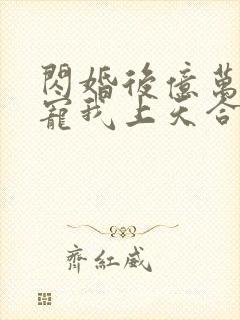 閃婚後億萬
寵我上天合
齊紅威